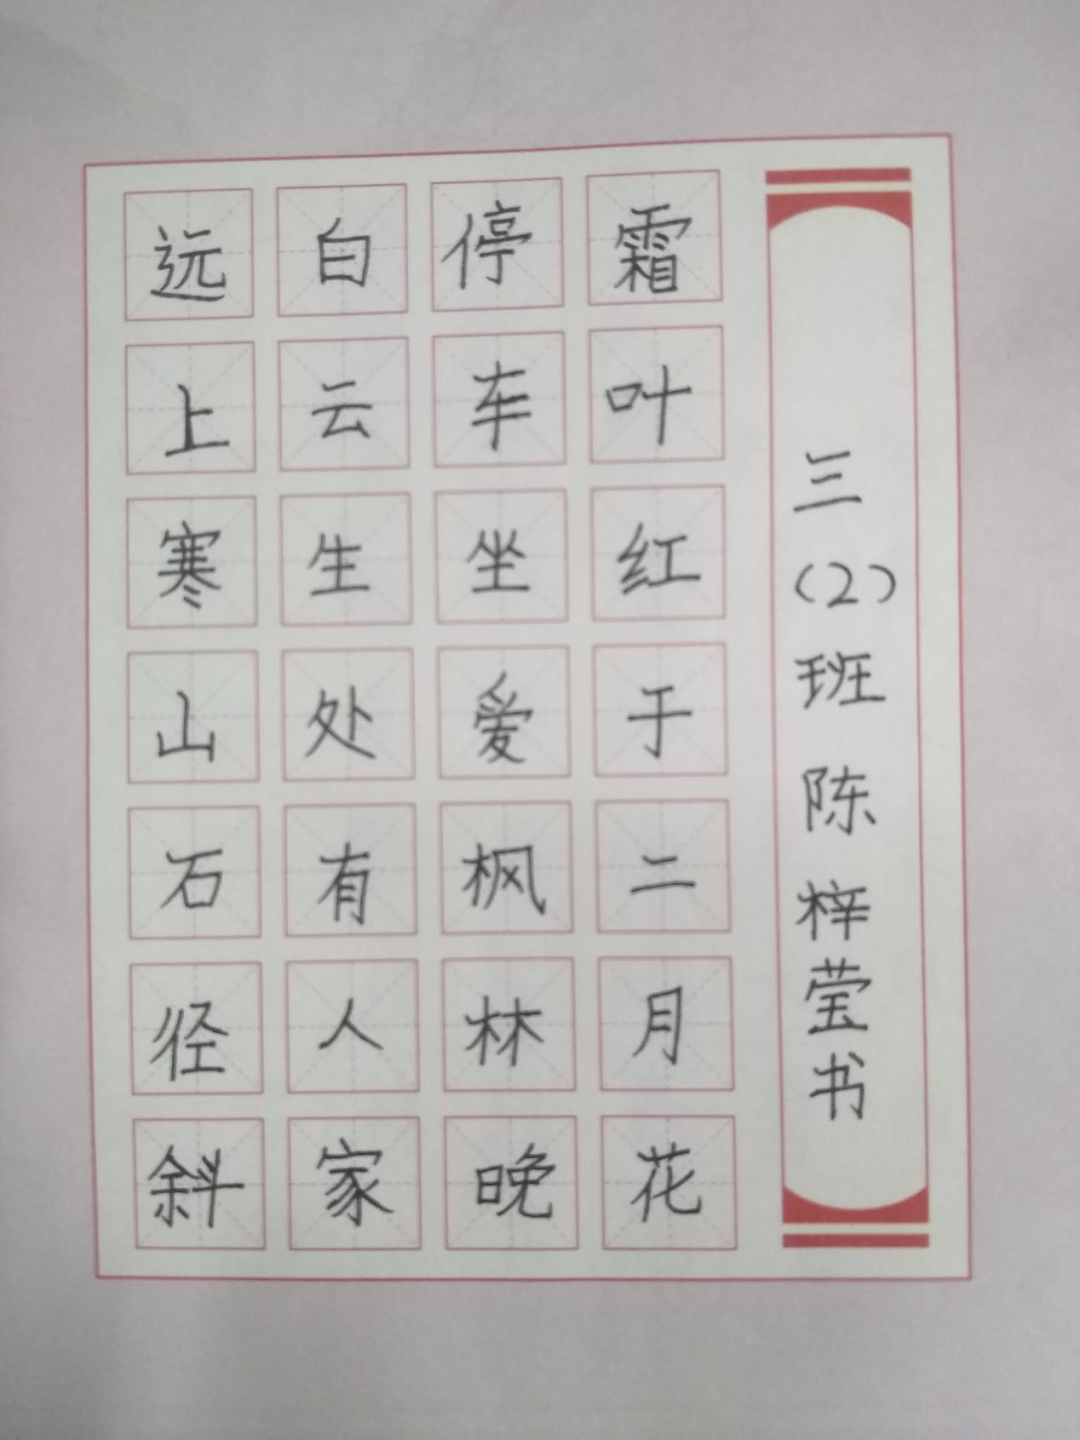 远上寒山石径斜
白云生处有人家
停车坐爱枫林晚
霜叶红于二月花
三（2）班陈梓莹书